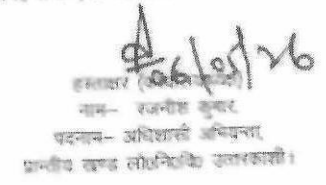 06/01/26
हस्ताक्षर
नाम– रजनीश कुमार,
पदनाम– अधिशासी अभियन्ता,
प्रान्तीय खण्ड लो०नि०वि० उत्तरकाशी।